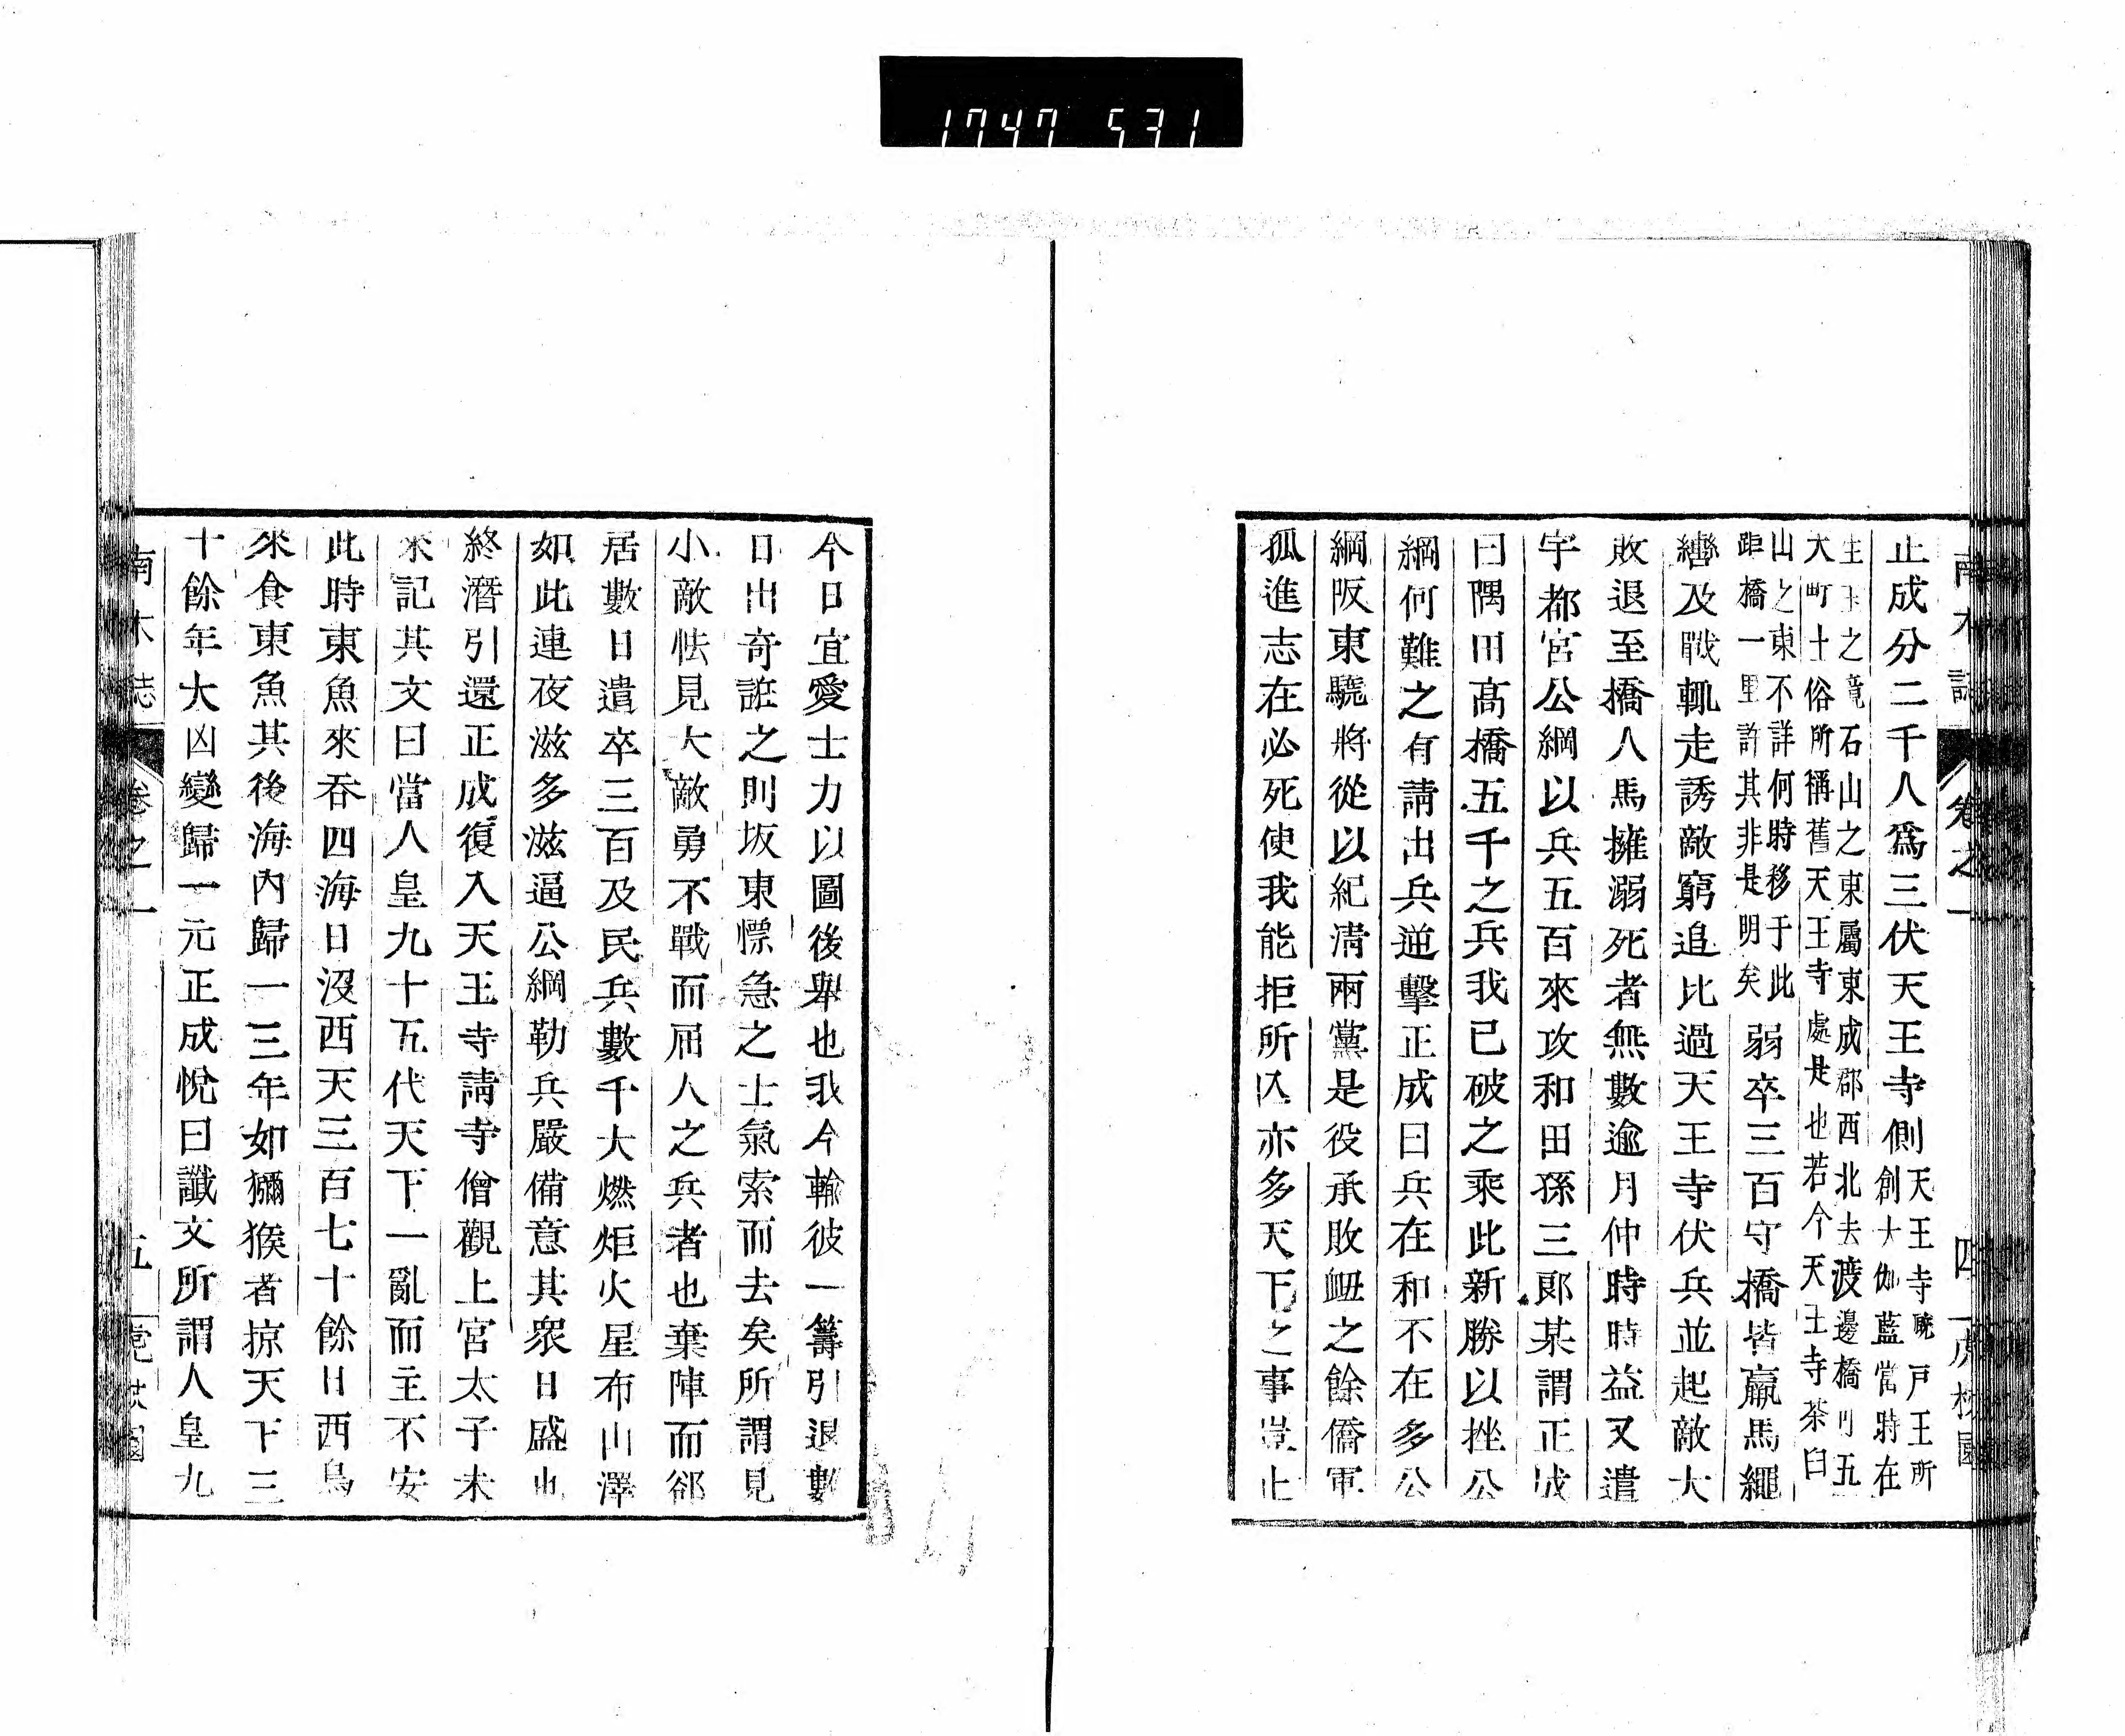 1747 531
南木誌 卷之一 四
正成分二千人爲三伏天王寺側天王寺廐戸王所
創大伽藍當時在
生玉之竟石山之東屬東成郡西北去渡邊橋可五
大町土俗所稱舊天王寺處是也若今天王寺茶臼
山之東不詳何時移于此
距橋一里許其非是明矣弱卒三百守橋皆羸馬繩
轡及戰輒走誘敵窮追比過天王寺伏兵並起敵大
敗退至橋人馬擁溺死者無數逾月仲時時益又遣
宇都宮公綱以兵五百來攻和田孫三郎某謂正成
曰隅田高橋五千之兵我已破之乘此新勝以挫公
綱何難之有請出兵逆擊正成曰兵在和不在多公
綱阪東驍將從以紀淸兩黨是役承敗衂之餘僑軍
孤進志在必死使我能拒所亾亦多天下之事豈止
今日宜愛士力以圖後舉也我今輸彼一籌引退數
日出奇誑之則坂東慓急之士氣索而去矣所謂見
小敵怯見大敵勇不戰而屈人之兵者也棄陣而郤
居數日遣卒三百及民兵數千大燃炬火星布山澤
如此連夜滋多滋逼公綱勒兵嚴備意其衆日盛也
終潛引還正成復入天王寺請寺僧觀上宮太子未
來記其文曰當人皇九十五代天下一亂而主不安
此時東魚來呑四海日沒西天三百七十餘日西鳥
來食東魚其後海內歸一三年如獼猴者掠天下三
十餘年大凶變歸一元正成悅曰讖文所謂人皇九
南木誌 卷之一 五